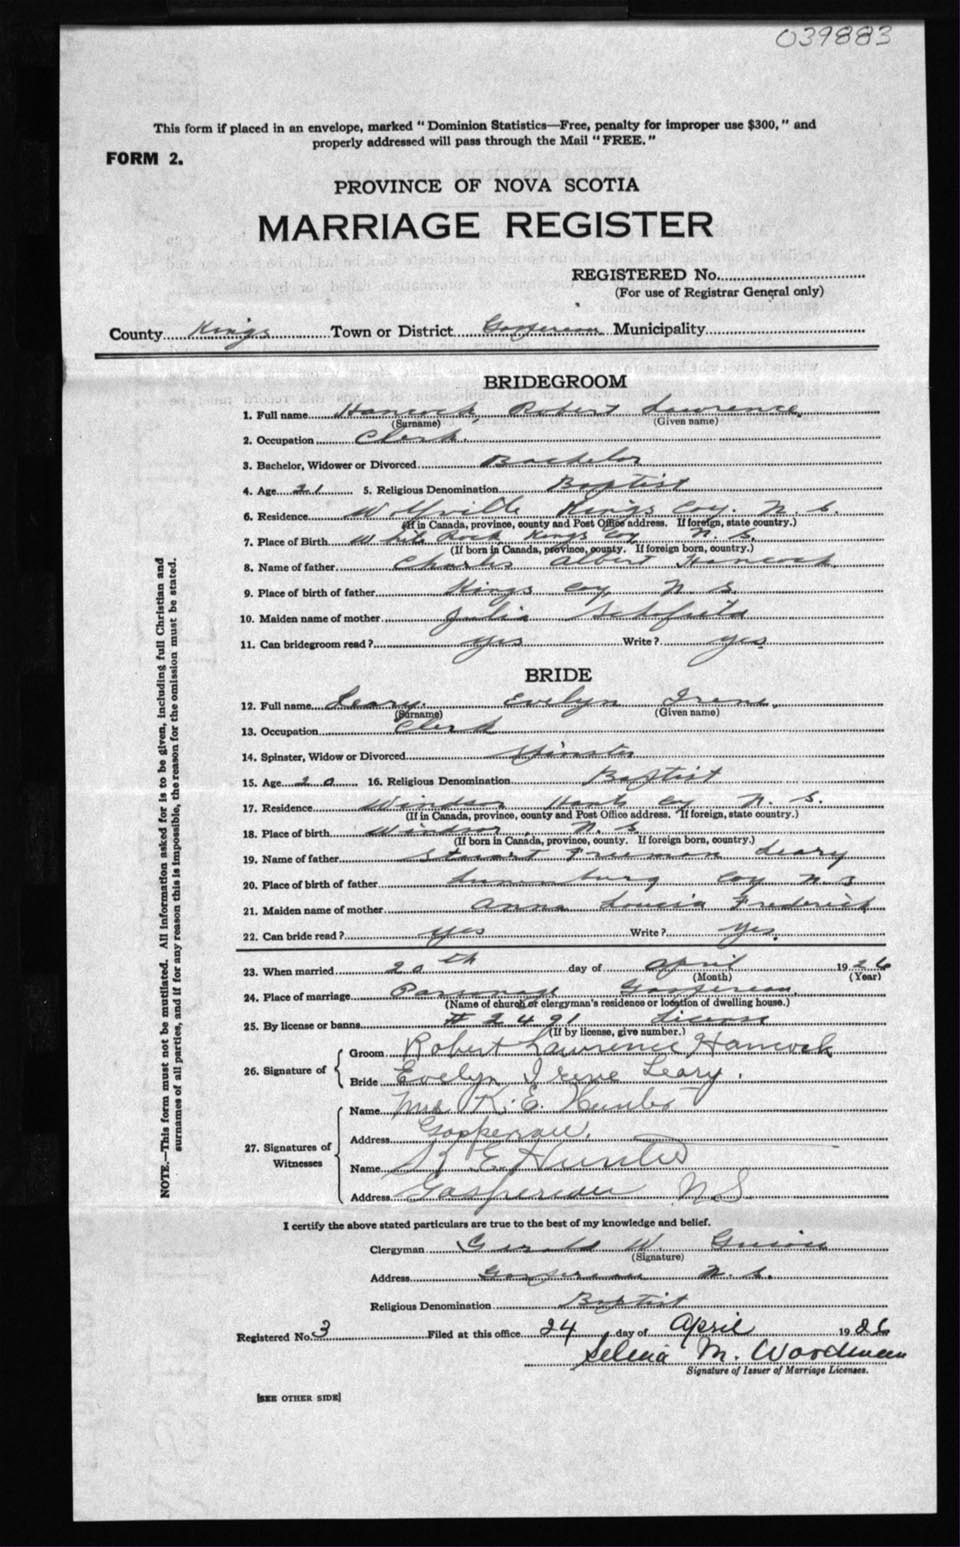 039883
This form if placed in an envelope, marked "Dominion Statistics—Free, penalty for improper use $300," and
properly addressed will pass through the Mail "FREE."
FORM 2.
PROVINCE OF NOVA SCOTIA
MARRIAGE REGISTER
REGISTERED No.
(For use of Registrar General only)
County Kings Town or District Gaspereau Municipality
BRIDEGROOM
1. Full name Hancock, Robert Lawrence.
(Surname) (Given name)
2. Occupation Clerk.
3. Bachelor, Widower or Divorced Bachelor
4. Age 21 5. Religious Denomination Baptist
6. Residence Wolfville Kings Coy. N. S.
(If in Canada, province, county and Post Office address. If foreign, state country.)
7. Place of Birth White Rock Kings Coy N. S.
(If born in Canada, province, county. If foreign born, country.)
8. Name of father Charles Albert Hancock
9. Place of birth of father Kings Coy N. S.
10. Maiden name of mother Julia Schofield
11. Can bridegroom read? yes Write? yes
BRIDE
12. Full name Leary. Evelyn Irene.
(Surname) (Given name)
13. Occupation Clerk
14. Spinster, Widow or Divorced Spinster
15. Age 20 16. Religious Denomination Baptist
17. Residence Windsor Hants Coy N. S.
(If in Canada, province, county and Post Office address. If foreign, state country.)
18. Place of birth Windsor, N. S
(If born in Canada, province, county. If foreign born, country.)
19. Name of father Stuart Freeman Leary
20. Place of birth of father Lunenburg Coy N. S
21. Maiden name of mother Anna Frederick
22. Can bride read? yes Write? yes.
23. When married 20th day of April 1926
(Month) (Year)
24. Place of marriage Parsonage Gaspereau.
(Name of church or clergyman's residence or location of dwelling house.)
25. By license or banns # 2491 license
(If by license, give number.)
26. Signature of
Groom Robert Lawrence Hancock
Bride Evelyn Irene Leary.
27. Signatures of Witnesses
Name Mrs K. E. Hunter
Address Gaspereau.
Name K E Hunter
Address Gaspereau N S
I certify the above stated particulars are true to the best of my knowledge and belief.
Clergyman Gerald W. Guiou
(Signature)
Address Gaspereau N. S.
Religious Denomination Baptist
Registered No. 3 Filed at this office 24 day of April 1926
Selena M. Woodman
Signature of Issuer of Marriage Licenses.
[SEE OTHER SIDE]
NOTE.—This form must not be mutilated. All information asked for is to be given, including full Christian and
surnames of all parties, and if for any reason this is impossible, the reason for the omission must be stated.